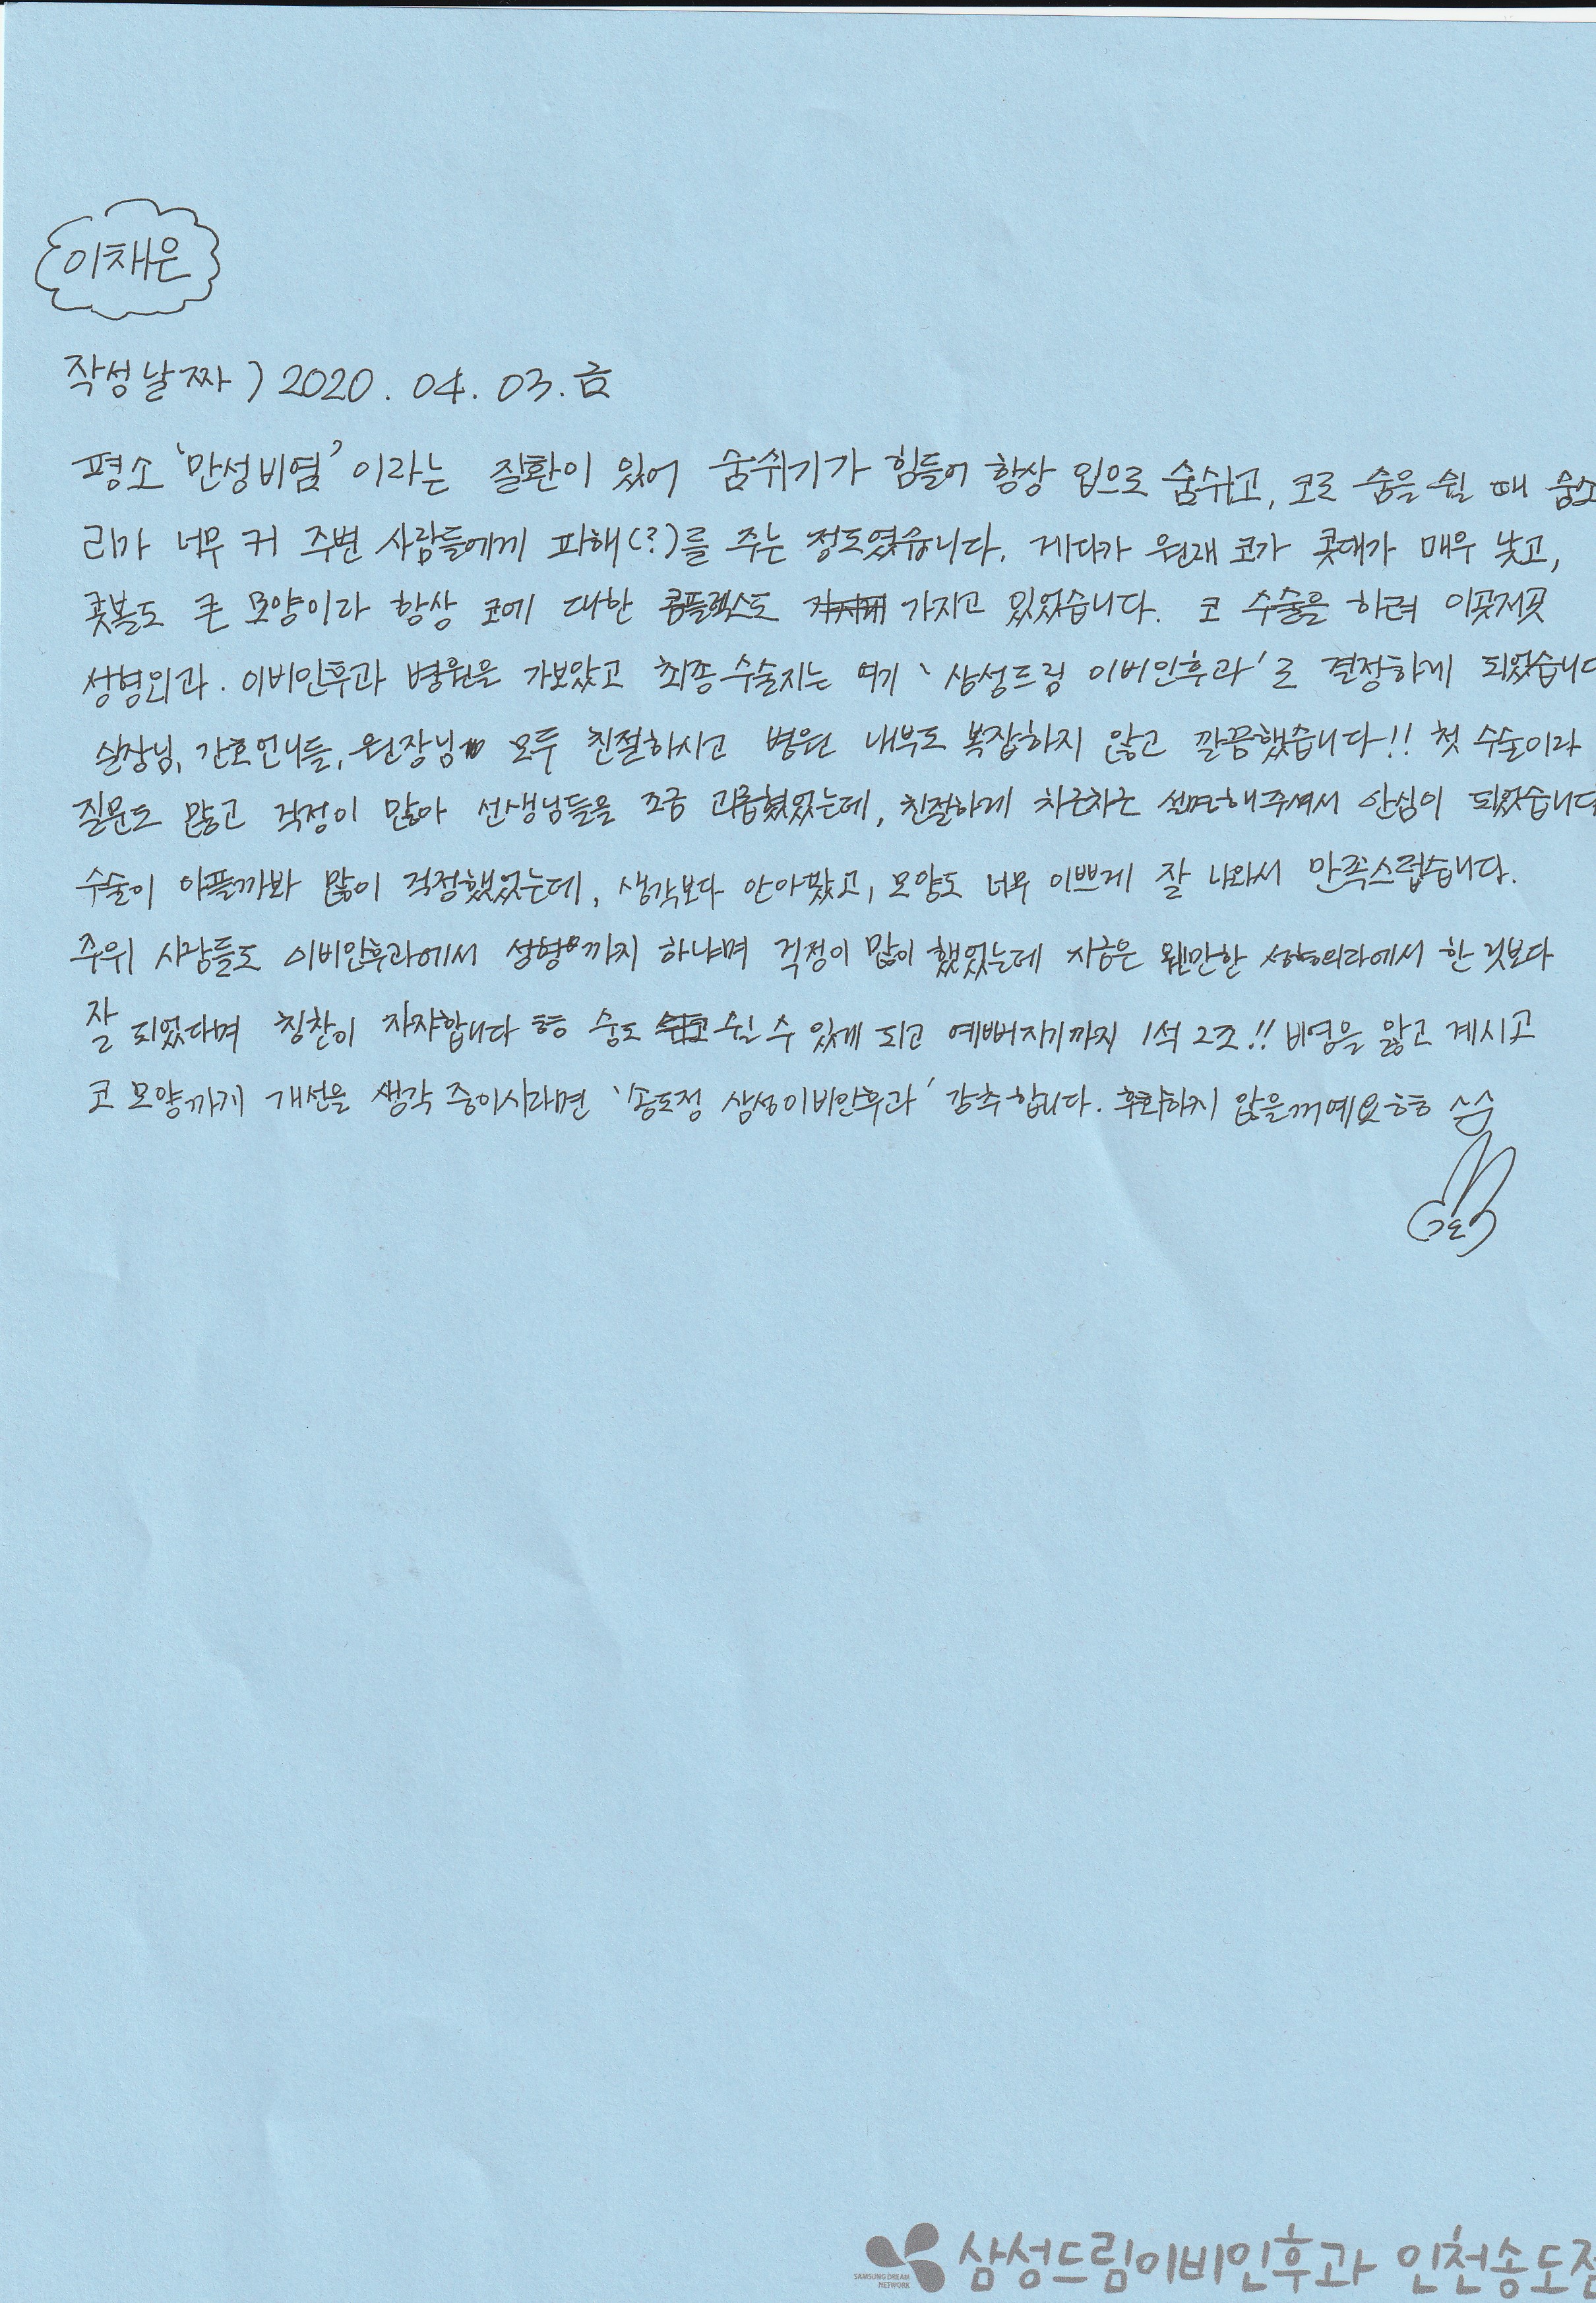 이채은
작성날짜) 2020. 04. 03. 금
평소 '만성비염' 이라는 질환이 있어 숨쉬기가 힘들어 항상 입으로 숨쉬고, 코로 숨을 쉴 때 숨소
리가 너무 커 주변 사람들에게 피해(?)를 주는 정도였습니다. 게다가 원래 코가 콧대가 매우 낮고,
콧볼도 큰 모양이라 항상 코에 대한 콤플렉스도 가지고 있었습니다. 코 수술을 하려 이곳저곳
성형외과. 이비인후과 병원을 가보았고 최종수술지는 여기 '삼성드림 이비인후과'로 결정하게 되었습니다
실장님, 간호언니들, 원장님 모두 친절하시고 병원 내부도 복잡하지 않고 깔끔했습니다!! 첫 수술이라
질문도 많고 걱정이 많아 선생님들을 조금 괴롭혔었는데, 친절하게 차근차근 설명해주셔서 안심이 되었습니다
수술이 아플까봐 많이 걱정했었는데, 생각보다 안아팠고, 모양도 너무 이쁘게 잘 나와서 만족스럽습니다.
주위 사람들도 이비인후과에서 성형까지 하냐며 걱정이 많이 했었는데 지금은 웬만한 성형외과에서 한 것보다
잘 되었다며 칭찬이 자자합니다 ㅎㅎ 숨도 쉴 수 있게 되고 예뻐지기까지 1석 2조!! 비염을 앓고 계시고
코 모양까지 개선을 생각 중이시라면 '송도점 삼성이비인후과' 강추합니다. 후회하지 않을꺼예요ㅎㅎ ^^
삼성드림이비인후과 인천송도점
SAMSUNG DREAM
NETWORK